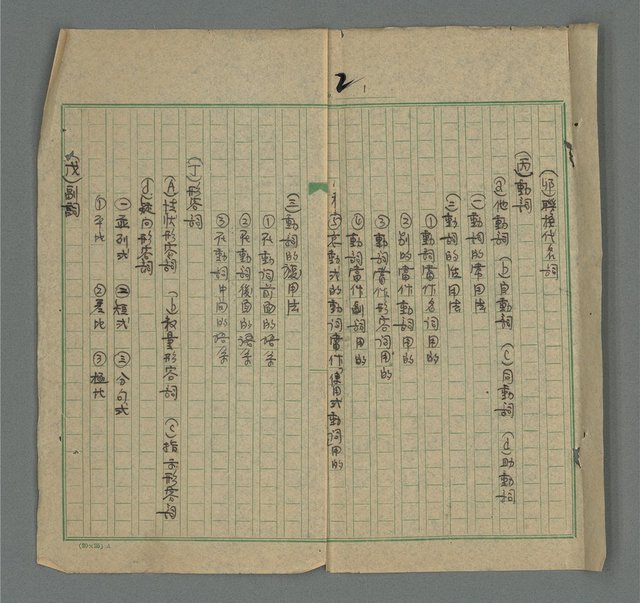 2
聯接代名詞
(丙)動詞
(a)他動詞 (b)自動詞 (c)同動詞 (d)助動詞
(一)動詞的常用法
(二)動詞的活用法
①動詞當作名詞用的
②別的當作動詞用的
③動詞當作形容詞用的
④動詞當作副詞用的
動式的動詞當作使用式動詞用的
(三)動詞的施用法
①在動詞前面的語系
②在動詞後面的語系
③在動詞中間的語系
(丁)形容詞
(A)性狀形容詞 (b)数量形容詞 (c)指示形容詞
(d)疑问形容詞
㊀並列式 ㊁短式 ㊂分句式
①平比 ②差比 ③極比
(戊)副詞